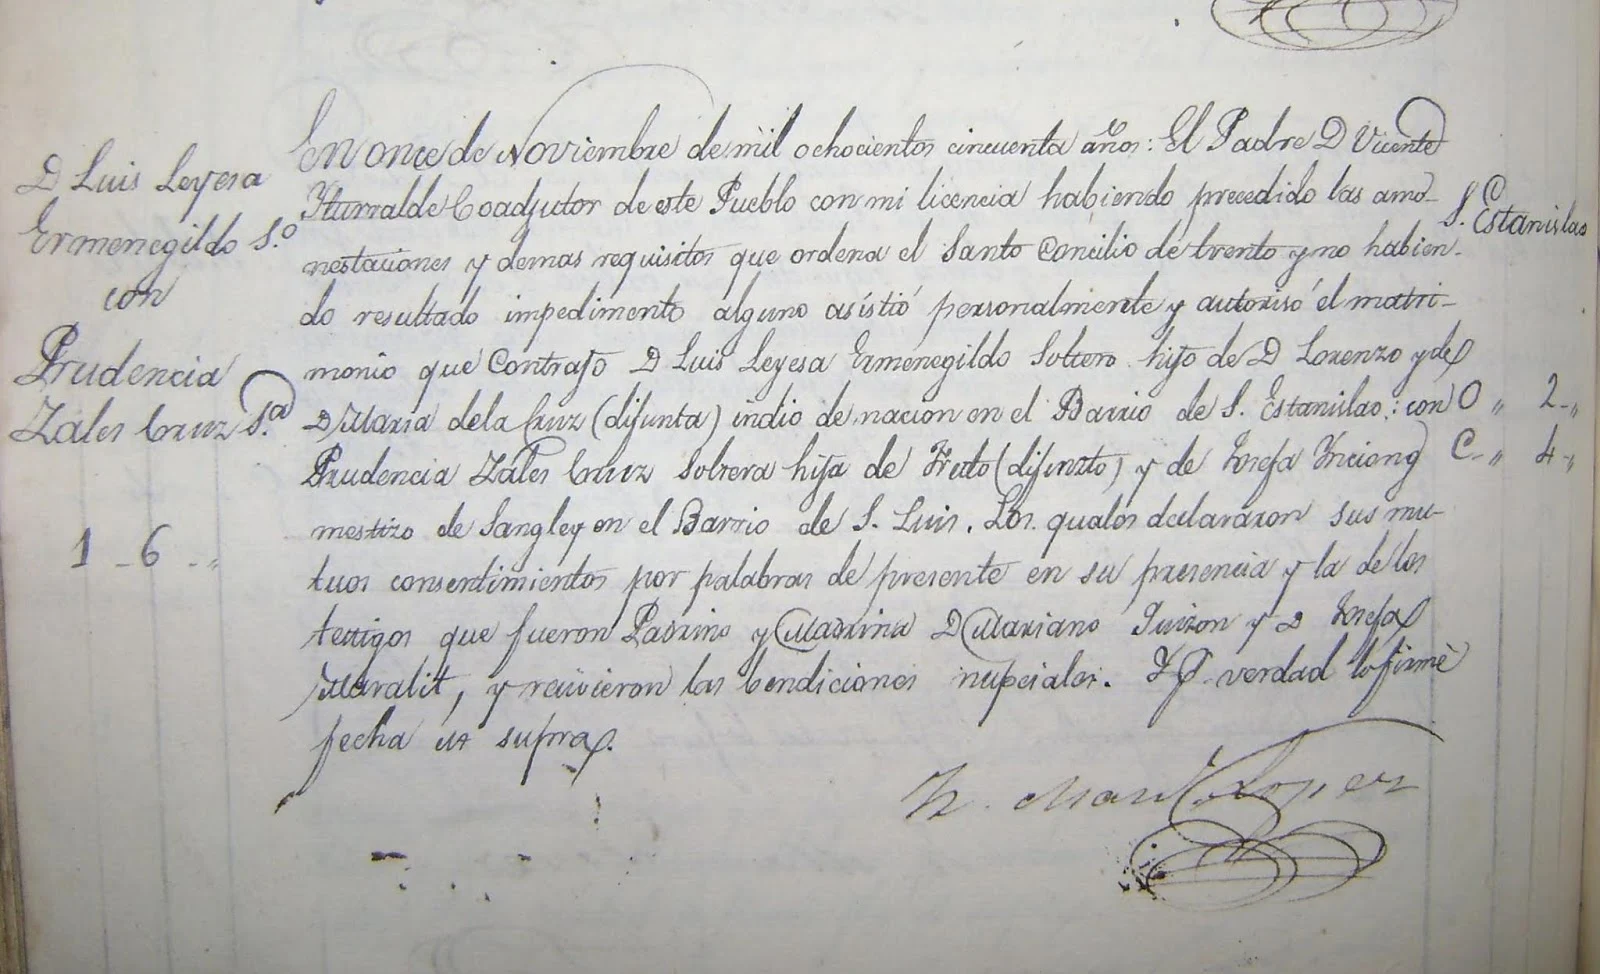 D Luis Leyesa
Ermenegildo S.o
con
Prudencia
Zales Cruz S.a
1 - 6 - „
En once de Noviembre de mil ochocientos cincuenta años: El Padre D Vicente
Yturralde Coadjutor de este Pueblo con mi licencia habiendo precedido las amo-
nestaciones y demas requisitos que ordena el Santo Concilio de trento y no habien-
do resultado impedimento alguno asistió personalmente y autorisó el matri-
monio que Contrajo D Luis Leyesa Ermenegildo Soltero hijo de D Lorenzo y de
D Maria dela Cruz (difunta) indio de nacion en el Barrio de S. Estanislao: con
Prudencia Zales Cruz Soltera hija de (difunto) y de Josefa
mestizo de Sangley en el Barrio de S. Luis. Los quales declararon sus mu-
tuos consentimientos por palabras de presente en su presencia y la de los
testigos que fueron Padrino y Madrina D Mariano y D Josefa
Maralit, y recivieron las bendiciones nupciales. Y P. verdad lo firmé
fecha ut supra.
S. Estanislao
O „ 2 - „
C - „ 4 - „
Lopez